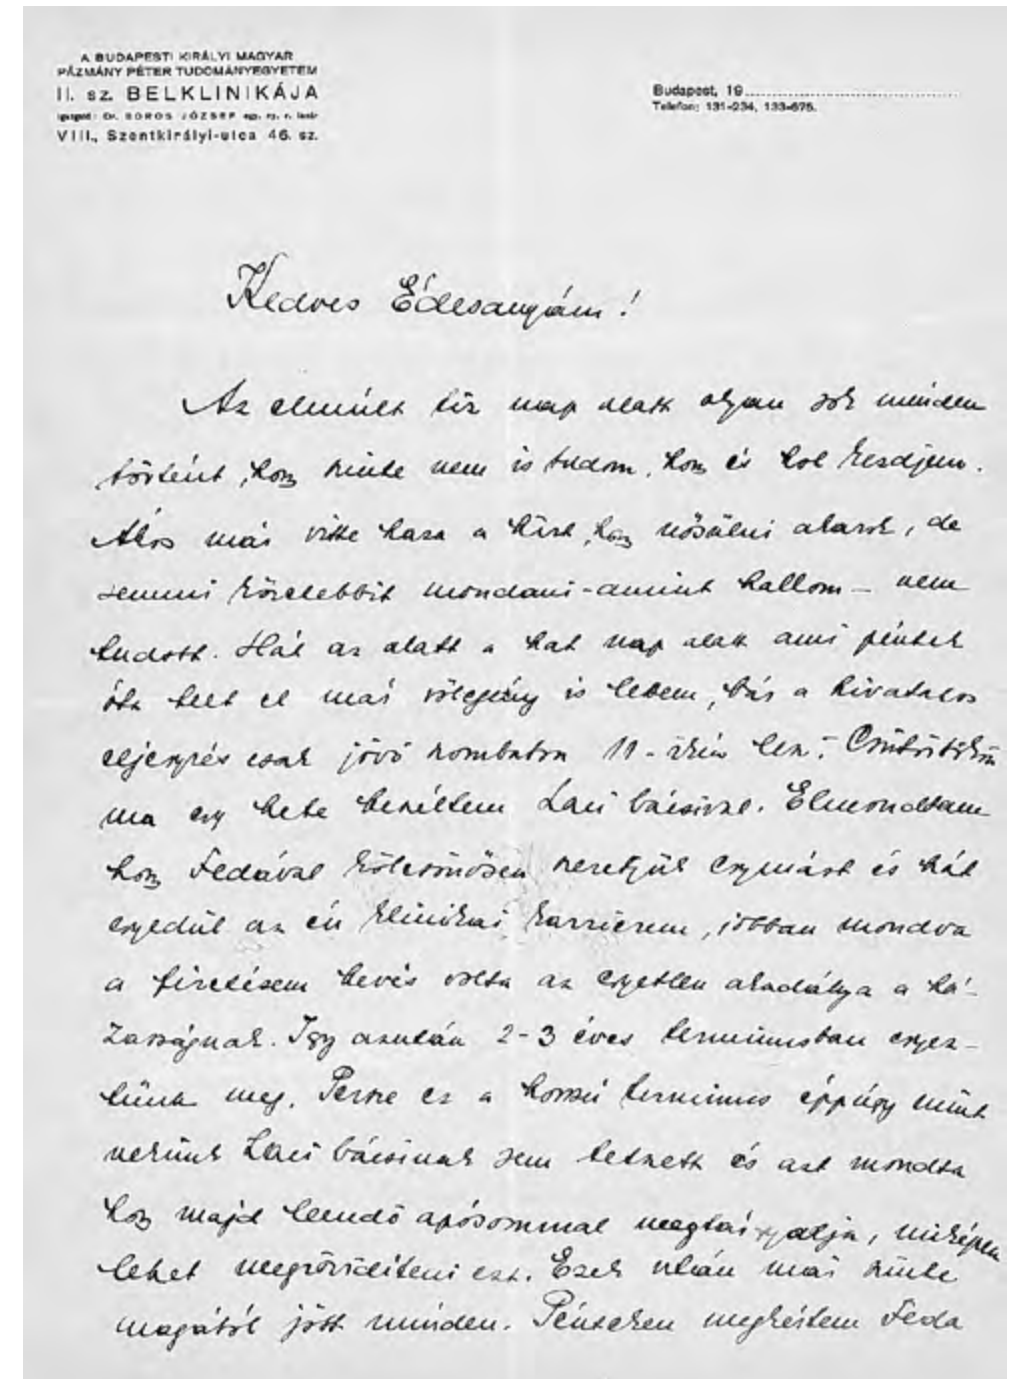 A BUDAPESTI KIRÁLYI MAGYAR
PÁZMÁNY PÉTER TUDOMÁNYEGYETEM
II. sz. BELKLINIKÁJA
Igazgató: Dr. BOROS JÓZSEF egy. ny. r. tanár
VIII., Szentkirályi-utca 46. sz.
Budapest, 19
Telefon: 131-234, 133-675.
Kedves Édesanyám!
Az elmúlt tíz nap alatt olyan sok minden
történt, hogy szinte nem is tudom, hogy és hol kezdjem.
Ákos már vitte haza a hírt, hogy nősülni akarok, de
semmi közelebbit mondani - amint hallom - nem
tudott. Hát az alatt a hat nap alatt ami péntek
óta telt el már vőlegény is lettem, bár a hivatalos
eljegyzés csak jövő szombaton 11-ikén lesz. Csütörtökön
ma egy hete beszéltem Laci bácsival. Elmondtam
hogy Fedával kölcsönösen szeretjük egymást és hát
egyedül az én klinikai karrierem, jobban mondva
a fizetésem kevés volta az egyetlen akadálya a há-
zasságnak. Így azután 2-3 éves terminusban egyez-
tünk meg. Persze ez a hosszú terminus éppúgy mint
nekünk Laci bácsinak sem tetszett és azt mondta
hogy majd leendő apósommal megtárgyalja, miképen
lehet megrövidíteni ezt. Ezek után már szinte
magától jött minden. Pénteken megkértem Feda